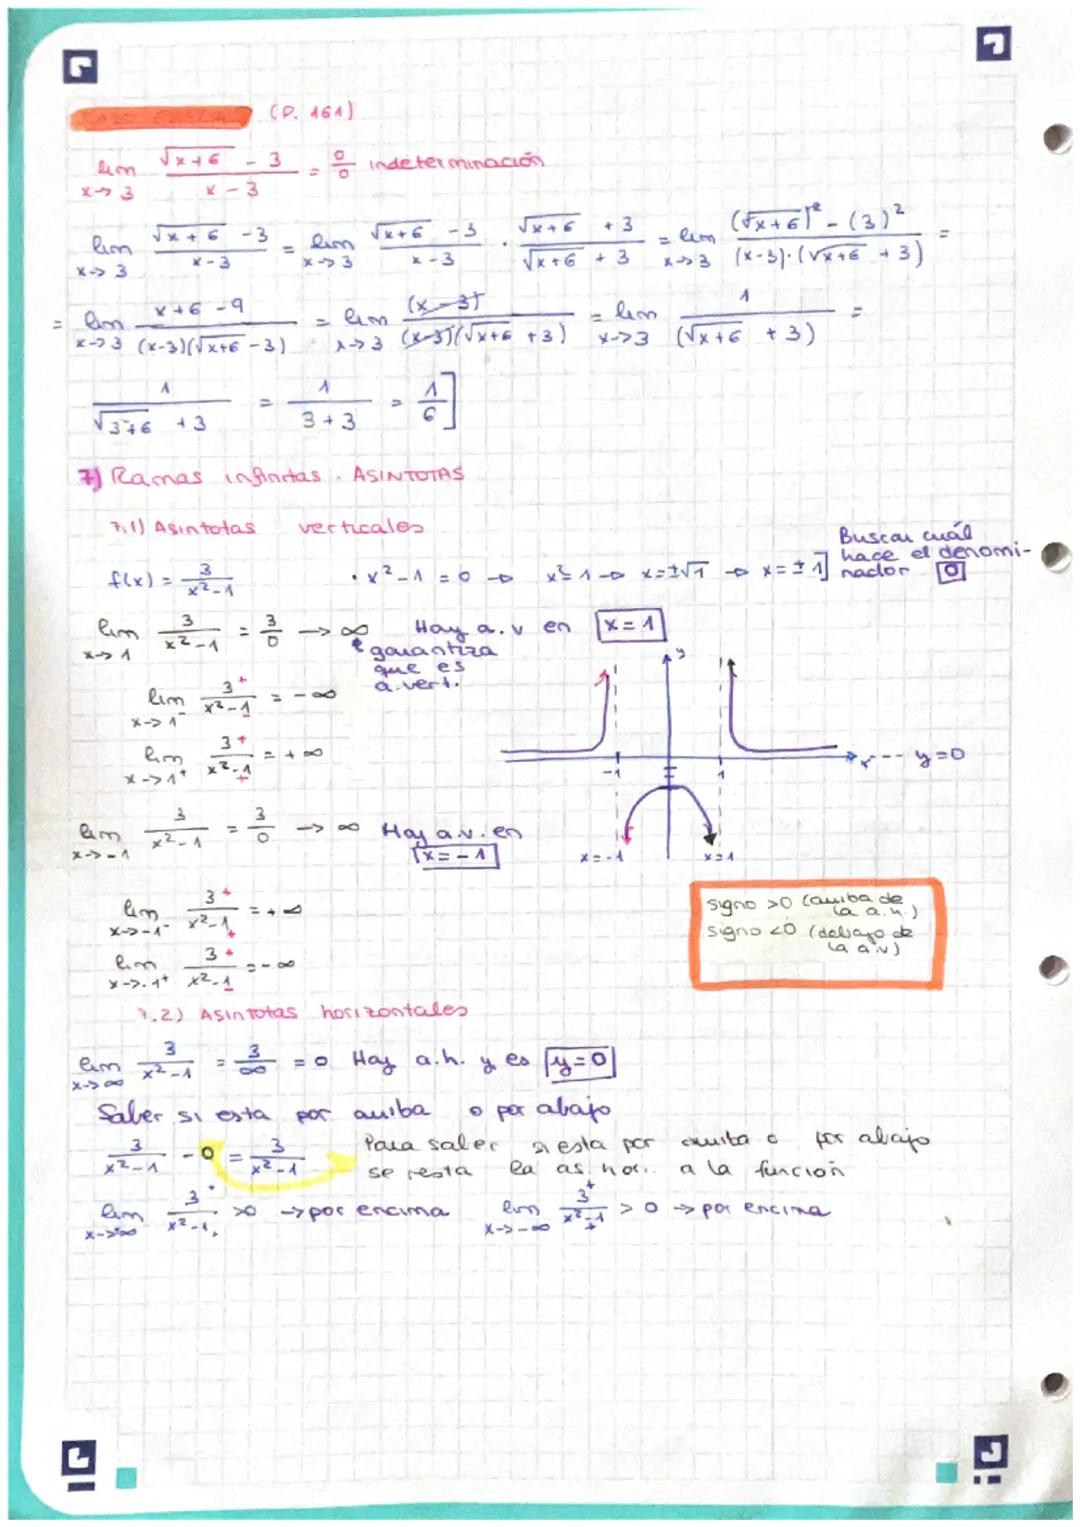 (P. 161)
lim x→3 (√x+6 - 3)/(x - 3) = 0/0 indeterminación
lim x→3 (√x+6 -3)/(x-3) = lim x→3 (√x+6 -3)/(x-3) · (√x+6 +3)/(√x+6 +3) = lim x→3 ((√x+6)² - (3)²)/((x-3)·(√x+6 +3)) =
= lim x→3 (x+6-9)/((x-3)(√x+6 -3)) = lim x→3 (x-3)/((x-3)(√x+6 +3)) = lim x→3 1/(√x+6 +3) =
1/(√3+6 +3) = 1/(3+3) = 1/6]
7) Ramas infinitas. ASINTOTAS
7.1) Asintotas verticales
Buscar cuál
hace el denomi-
nador 0
f(x) = 3/(x²-1) · x²-1 = 0 → x²=1 → x=±√1 → x=±1]
lim x→1 3/(x²-1) = 3/0 → ∞ Hay a.v en x=1
garantiza
que es
a.vert.
lim x→1⁻ 3⁺/(x²-1)₋ = -∞
lim x→1⁺ 3⁺/(x²-1)₊ = +∞
y
-1 1 x --- y=0
x=-1 x=1
lim x→-1 3/(x²-1) = 3/0 → ∞ Hay a.v. en
x=-1
lim x→-1⁻ 3⁺/(x²-1)₊ = +∞
lim x→-1⁺ 3⁺/(x²-1)₋ = -∞
signo >0 (arriba de
la a.h.)
signo <0 (debajo de
la a.v)
7.2) Asintotas horizontales
lim x→∞ 3/(x²-1) = 3/∞ = 0 Hay a.h. y es y=0
Saber si esta por arriba o por abajo
3/(x²-1) - 0 = 3/(x²-1) Para saber si esta por arriba o por abajo
se resta la as. hori. a la función
lim x→+∞ 3⁺/(x²-1)₊ >0 → por encima lim x→-∞ 3⁺/(x²-1)₊ > 0 → por encima